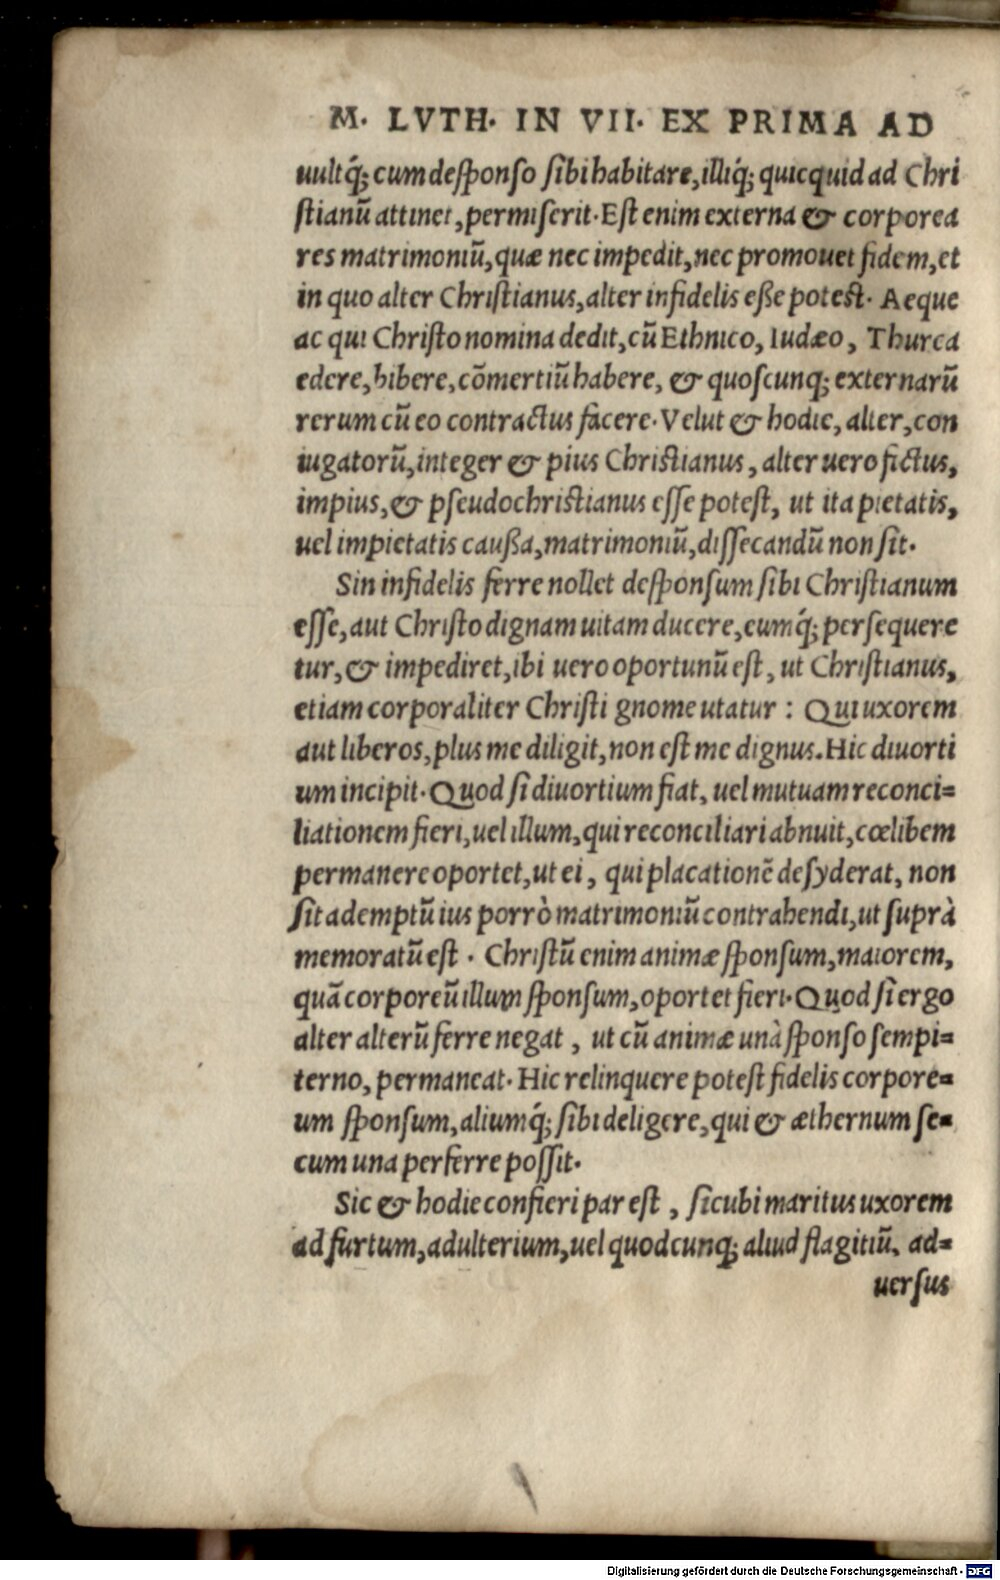 M. LVTH. IN VII. EX PRIMA AD
uultq́; cum desponso sibi habitare, illiq́; quicquid ad Chri
stianū attinet, permiserit. Est enim externa & corporea
res matrimoniū, quæ nec impedit, nec promouet fidem, et
in quo alter Christianus, alter infidelis eße potest. Aeque
ac qui Christo nomina dedit, cū Ethnico, Iudæo, Thurca
edere, bibere, cōmertiū habere, & quoscunq; externarū
rerum cū eo contractus facere. Velut & hodie, alter, con
iugatorū, integer & pius Christianus, alter uero fictus,
impius, & pseudochristianus esse potest, ut ita pietatis,
uel impietatis caußa, matrimoniū, dissecandū non sit.
Sin infidelis ferre nollet desponsum sibi Christianum
esse, aut Christo dignam uitam ducere, eumq́; persequere
tur, & impediret, ibi uero oportunū est, ut Christianus,
etiam corporaliter Christi gnome utatur : Qui uxorem
aut liberos, plus me diligit, non est me dignus. Hic diuorti
um incipit. Quod si diuortium fiat, uel mutuam reconci=
liationem fieri, uel illum, qui reconciliari abnuit, cœlibem
permanere oportet, ut ei, qui placationē desyderat, non
sit ademptū ius porrò matrimoniū contrahendi, ut suprà
memoratū est . Christū enim animæ sponsum, maiorem,
quā corporeū illum sponsum, oportet fieri. Quod si ergo
alter alterū ferre negat , ut cū animæ unà sponso sempi=
terno, permaneat. Hic relinquere potest fidelis corpore=
um sponsum, aliumq́; sibi deligere, qui & æthernum se=
cum una perferre possit.
Sic & hodie confieri par est , sicubi maritus uxorem
ad furtum, adulterium, uel quodcunq; aliud flagitiū, ad=
uersus
Digitalisierung gefördert durch die Deutsche Forschungsgemeinschaft - DFG